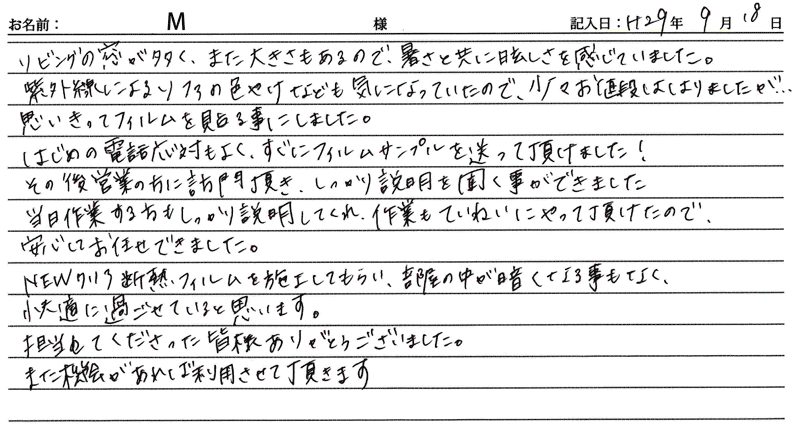 お名前： M 様 記入日：H29年 9月 18日
リビングの窓が多く、また大きさもあるので、暑さと共に眩しさを感じていました。
紫外線によるソファの色やけなども気になっていたので、少々お値段はしはりましたが…
思いきってフィルムを貼る事にしました。
はじめの電話応対もよく、すぐにフィルムサンプルを送って頂けました！
その後営業の方に訪門頂き、しっかり説明を聞く事ができました
当日作業する方もしっかり説明してくれ、作業もていねいにやって頂けたので、
安心してお任せできました。
NEWクリア断熱フィルムを施工してもらい、部屋の中が暗くなる事もなく、
快適に過ごせていると思います。
担当してくださった皆様ありがとうございました。
また機会があれば利用させて頂きます